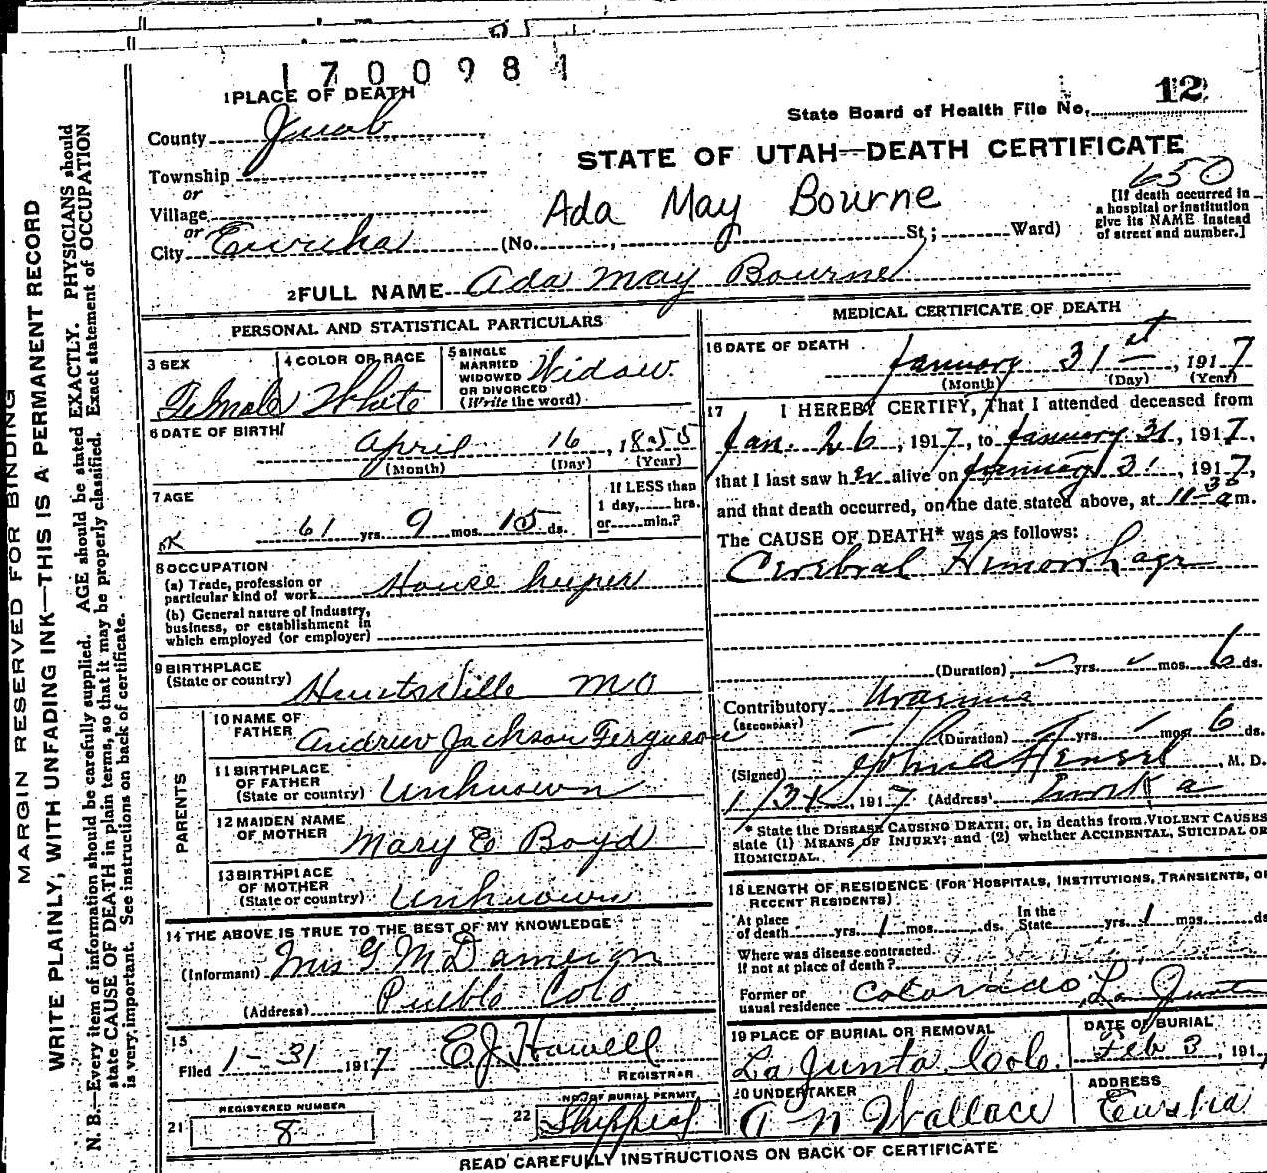 1700981
1 PLACE OF DEATH
12
State Board of Health File No.
County Juab
STATE OF UTAH—DEATH CERTIFICATE
650
Township
or
Village
Ada May Bourne
[If death occurred in
a hospital or institution
give its NAME instead
of street and number.]
or
City Eureka (No. , St.; Ward)
2 FULL NAME Ada May Bourne
PERSONAL AND STATISTICAL PARTICULARS
3 SEX
Female
4 COLOR OR RACE
White
5 SINGLE
MARRIED
WIDOWED
OR DIVORCED
(Write the word)
Widow
6 DATE OF BIRTH
April 16, 1855
(Month) (Day) (Year)
7 AGE
61 yrs. 9 mos. 15 ds.
If LESS than
1 day, hrs.
or min.?
8 OCCUPATION
(a) Trade, profession or
particular kind of work House keeper
(b) General nature of Industry,
business, or establishment in
which employed (or employer)
9 BIRTHPLACE
(State or country) Huntsville MO
PARENTS
10 NAME OF
FATHER Andrew Jackson Ferguson
11 BIRTHPLACE
OF FATHER
(State or country) Unknown
12 MAIDEN NAME
OF MOTHER Mary E Boyd
13 BIRTHPLACE
OF MOTHER
(State or country) Unknown
14 THE ABOVE IS TRUE TO THE BEST OF MY KNOWLEDGE
(Informant) Mrs G M Dameron
(Address) Pueblo Colo
15
Filed 1-31 1917 E J Howell
REGISTRAR
REGISTERED NUMBER
21 8
NO. OF BURIAL PERMIT
22 Shipped
MEDICAL CERTIFICATE OF DEATH
16 DATE OF DEATH
January 31st, 1917
(Month) (Day) (Year)
17 I HEREBY CERTIFY, That I attended deceased from
Jan. 26, 1917, to January 31, 1917,
that I last saw her alive on January 31, 1917,
and that death occurred, on the date stated above, at 11-30 a m.
The CAUSE OF DEATH* was as follows:
Cerebral Hemorrhage
(Duration) yrs. mos. 6 ds.
Contributory Uraemia
(SECONDARY)
(Duration) yrs. mos. 6 ds.
(Signed) John A , M. D.
1/31, 1917 (Address) Eureka
* State the DISEASE CAUSING DEATH, or, in deaths from VIOLENT CAUSES
state (1) MEANS OF INJURY; and (2) whether ACCIDENTAL, SUICIDAL OR
HOMICIDAL.
18 LENGTH OF RESIDENCE (FOR HOSPITALS, INSTITUTIONS, TRANSIENTS, OR
RECENT RESIDENTS)
At place
of death yrs. 1 mos. ds.
In the
State yrs. 1 mos. ds
Where was disease contracted.
if not at place of death?
Former or
usual residence Colorado La Junta
19 PLACE OF BURIAL OR REMOVAL
La Junta Colo.
DATE OF BURIAL
Feb 3, 191
20 UNDERTAKER
A N Wallace
ADDRESS
Eureka
READ CAREFULLY INSTRUCTIONS ON BACK OF CERTIFICATE
MARGIN RESERVED FOR BINDING
WRITE PLAINLY; WITH UNFADING INK—THIS IS A PERMANENT RECORD
N. B.—Every item of information should be carefully supplied. AGE should be stated EXACTLY. PHYSICIANS should
state CAUSE OF DEATH in plain terms, so that it may be properly classified. Exact statement of OCCUPATION
is very important. See instructions on back of certificate.